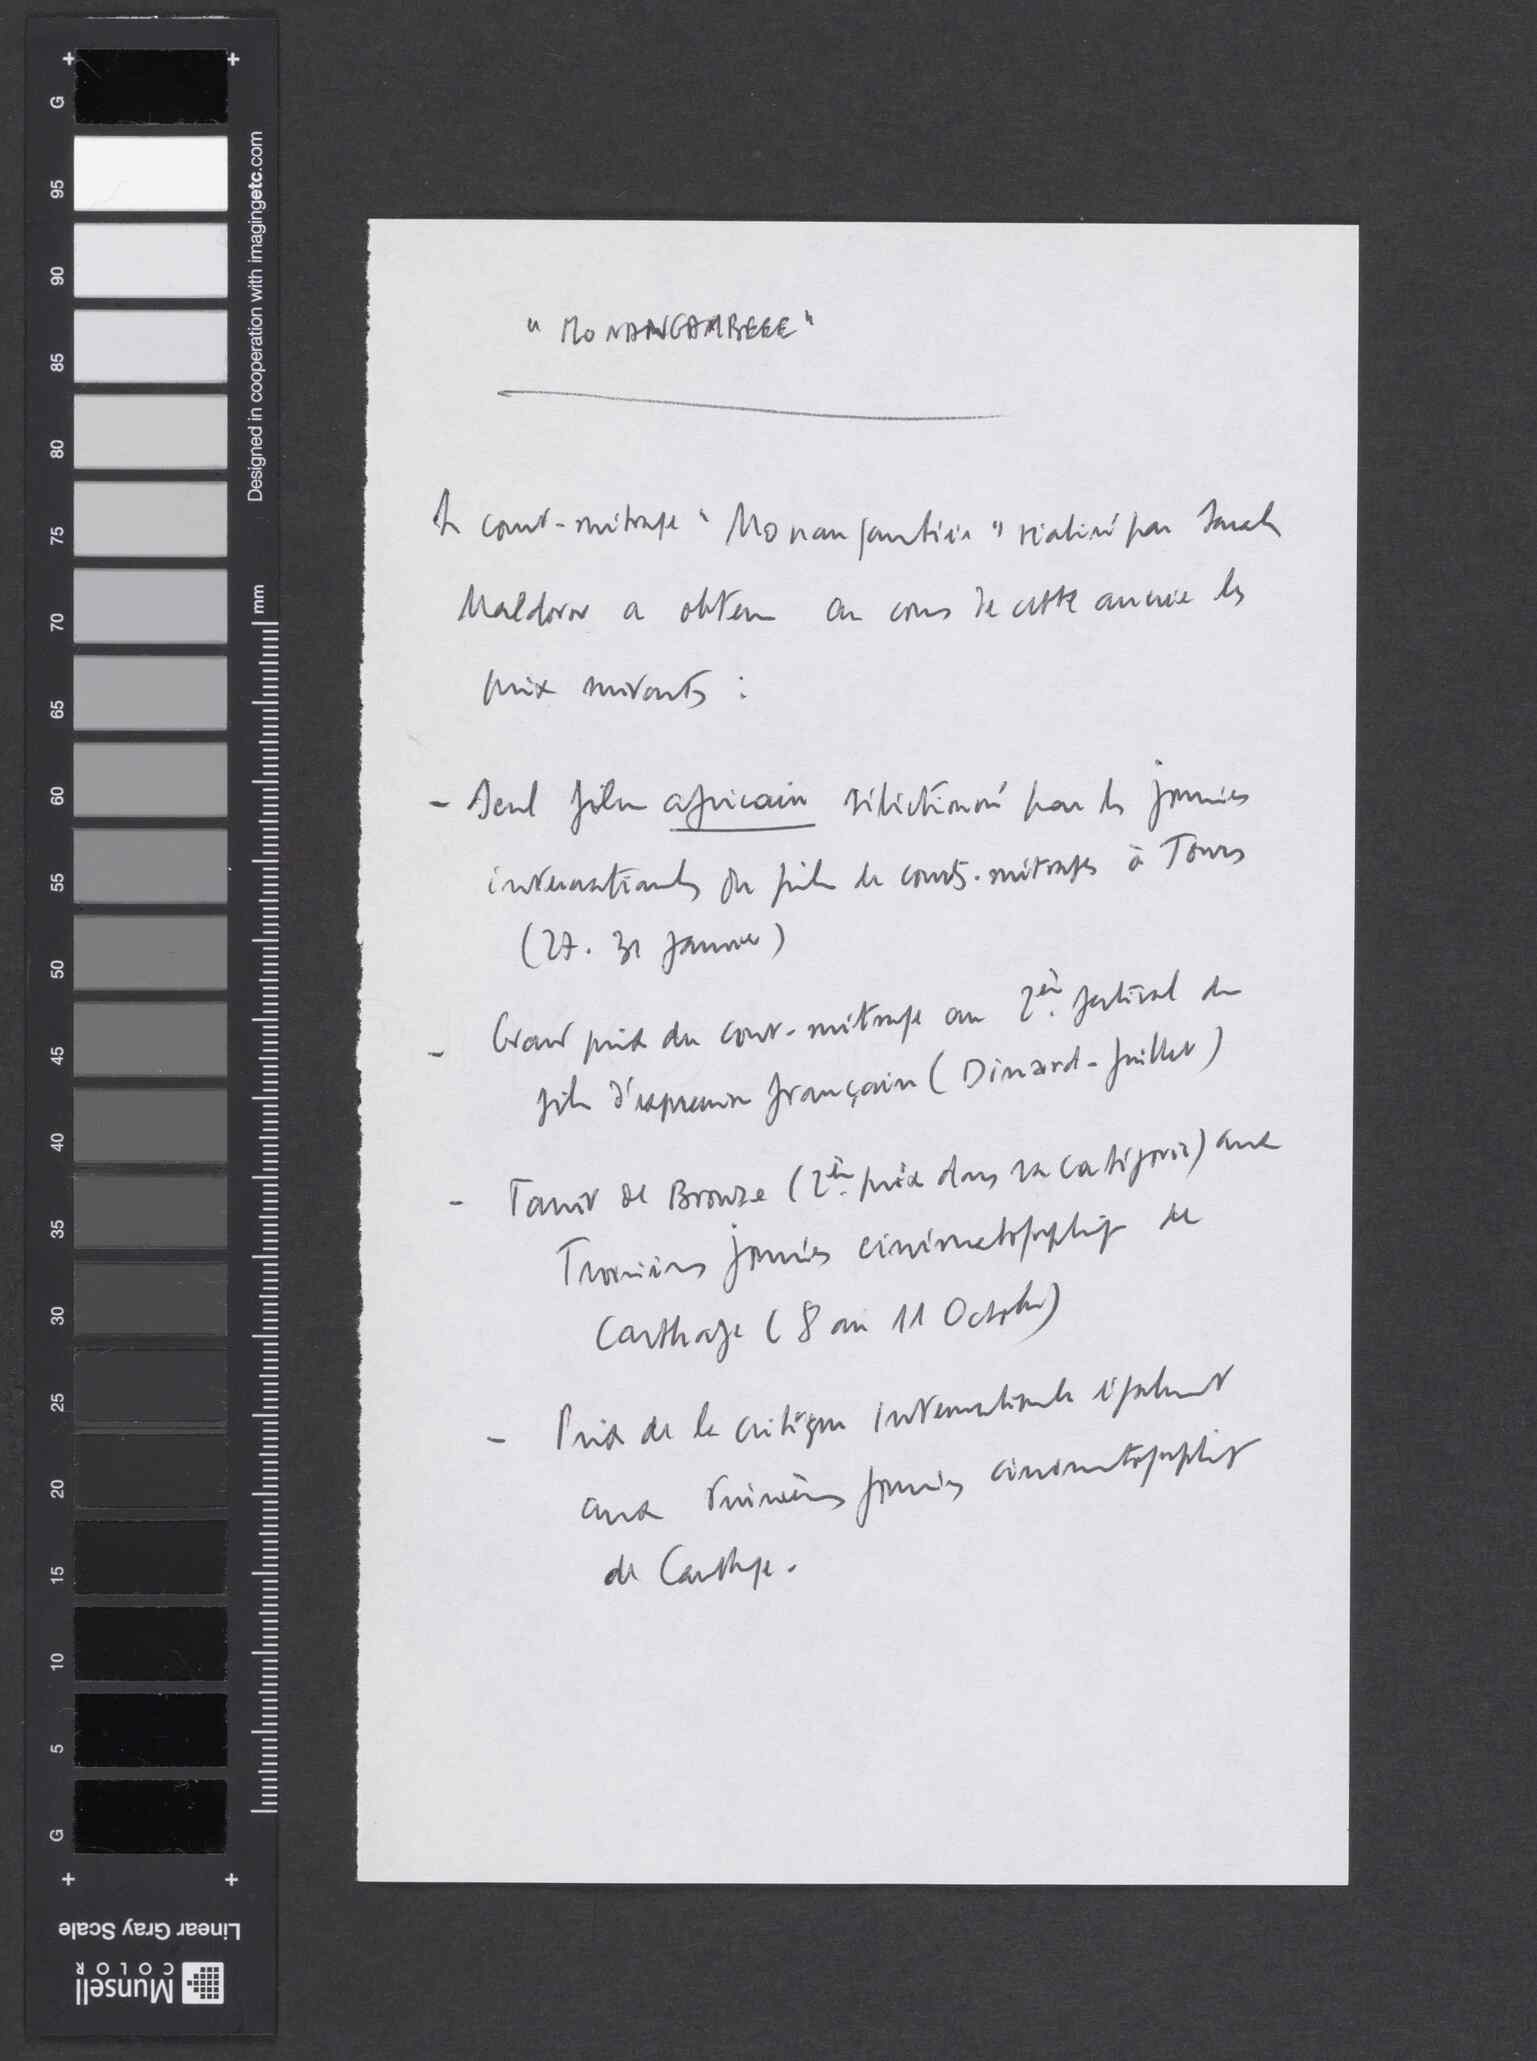 G
95
90
85
80
75
70
65
60
55
50
45
40
35
30
25
20
15
10
5
G
Designed in cooperation with imagingetc.com
mm
Linear Gray Scale
Munsell
COLOR
"MONANGAMBEEE"
Le court-métrage "Monangambééé" réalisé par Sarah
Maldoror a obtenu au cours de cette année les
prix suivants :
- Seul film africain sélectionné par les journées
internationales du film de courts-métrages à Tours
(27. 31 Janvier)
- Grand prix du court-métrage au 2ème festival du
film d'expression française (Dinard - Juillet)
- Tanit de Bronze (2ème prix dans sa catégorie) aux
Troisièmes journées cinématographiques de
Carthage (8 au 11 Octobre)
- Prix de la critique Internationale également
aux troisièmes journées cinématographiques
de Carthage.